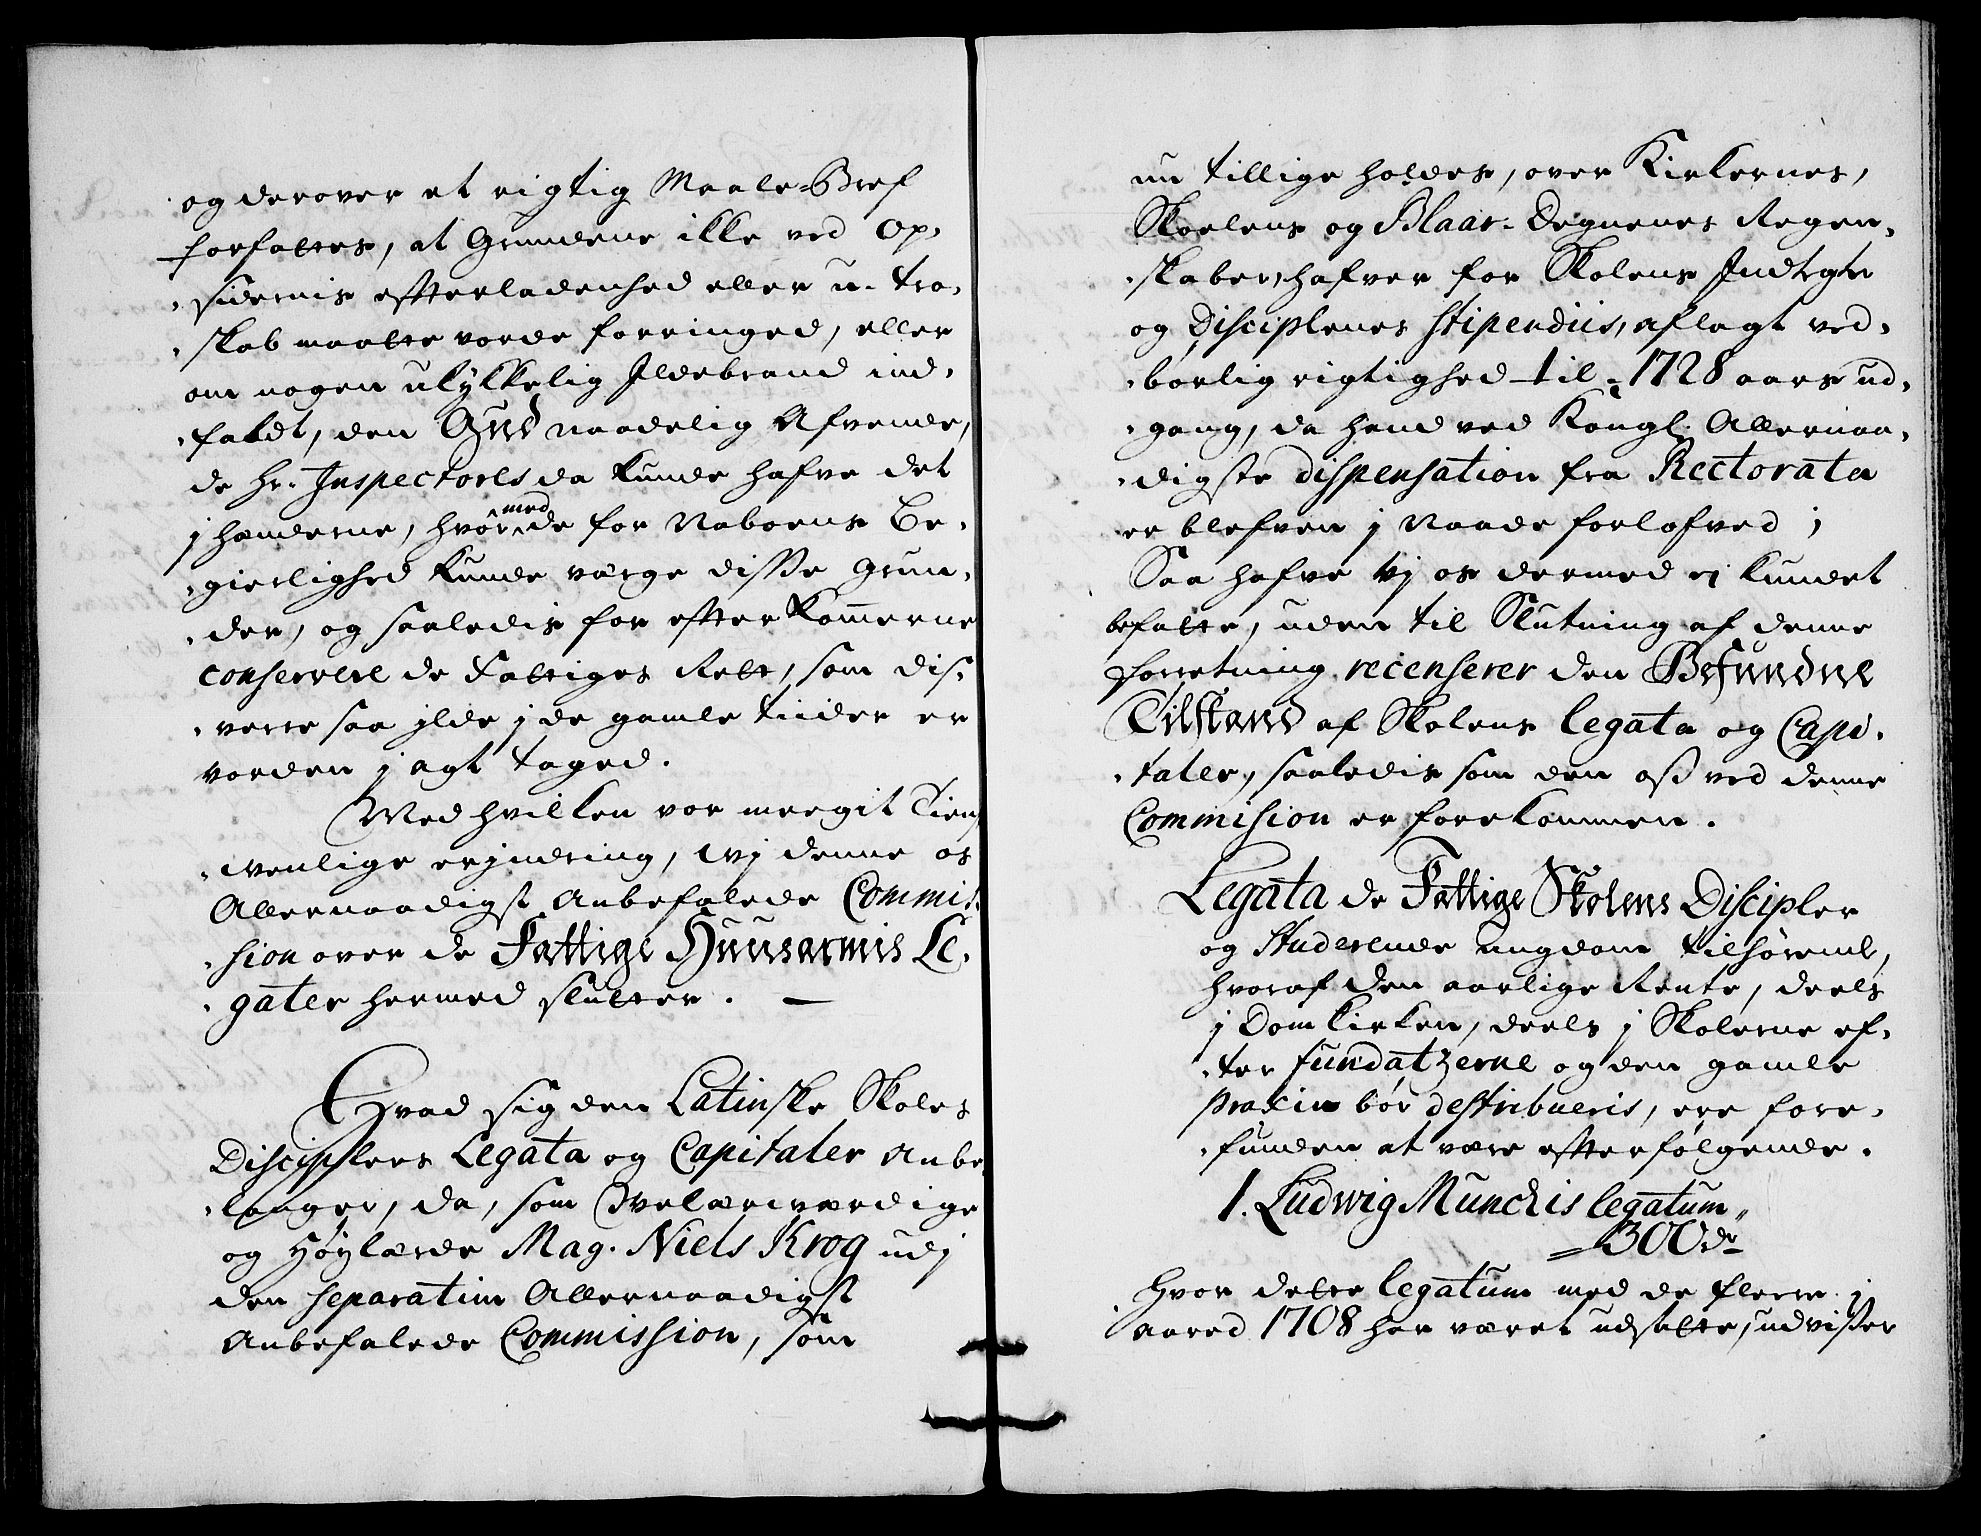 og derover et rigtig Maale-Bref
forfattes, at Grundene ikke ved Op-
sidernis efterladenhed eller u-tro-
skab maatte vorde forringed, eller
om nogen ulykkelig Ildebrand ind-
faldt, den Gud naadelig Afvende,
de Hr. Inspectores da kunde hafve det
j hænderne, hvor med de for Naboens Be-
gierlighed kunde værge disse Grun-
der, og saaledis for efterkomerne
conservere de Fattiges Rett, som dis-
verre saa ilde j de gamle tiider er
vorden j agt taged.
Med hvilken vor meegit Tien-
venlige erindring, wj denne os
Allernaadigst Anbefalede Commis-
sion over de Fattige Huusarmis Le-
gater hermed slutter. —
Hvad sig den Latinske Skoles
Disciplers Legata og Capitaler Anbe-
langer, da, som Velærværdige
og Høylærde Mag. Niels Krog udj
den separatim Allernaadigst
Anbefalede Commission, som
nu tillige holdes, over Kirkernes,
Skoelens og Blaar-Degnenes Regen-
skaber, hafver for Skolens Indtegter
og Disciplenes stipendiis, aflagt ved-
børlig rigtighed til 1728 aars ud-
gang, da hand ved Kongl. Allernaa-
digste dispensation fra Rectorata
er blefven j Naade forlofved;
Saa hafve vj os dermed ej kundet
befatte, uden til Slutning af denne
forretning recenserer den Befundne
Tilstand af Skolens legata og Capi-
taler, saaledis som den oss ved denne
Commision er forekommen.
Legata de Fattige Skolens Discipler
og studerende ungdom tilhørende,
hvoraf den aarlige Rente, deels
j Domkirken, deels j Skolerne ef-
ter fundatzerne og den gamle
praxin bør destribueris, ere fore-
funden at være efterfølgende.
1. Ludwig Munchis legatum
= 300 dr
Hvor dette legatum med de fleere j
aared 1708 har været udsatte, udviser